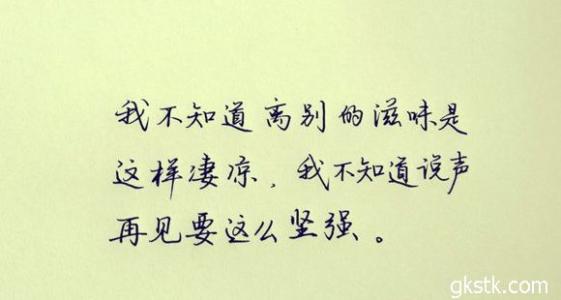 我不知道离别的滋味是
这样凄凉,我不知道说声
再见要这么坚强。
gkstk.com